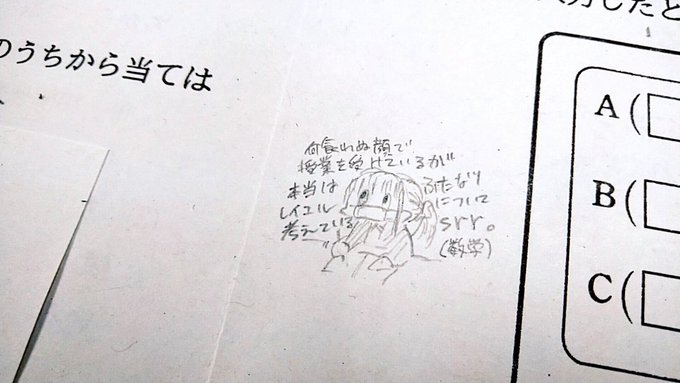 のうちから当ては
したと
何食わぬ顔で
授業を受けているが
本当は ふたなり
について
考えている srr。
(数学)
A(
B(
C(